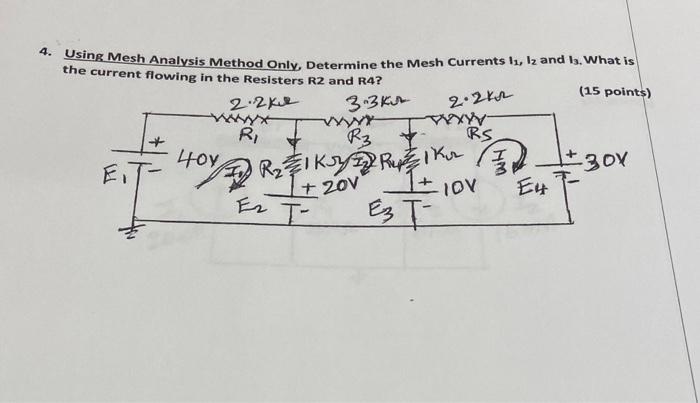 4. Using Mesh Analysis Method Only, Determine the Mesh Currents I₁, I₂ and I₃. What is
the current flowing in the Resisters R2 and R4?
(15 points)
2.2KΩ 3.3KΩ 2.2KΩ
R₁ R₃ R5
+ 40V I₁ R₂ 1KΩ I₂ R4 1KΩ I3 + 30V
E₁ - + 20V + 10V E4 -
E₂ - E₃ -